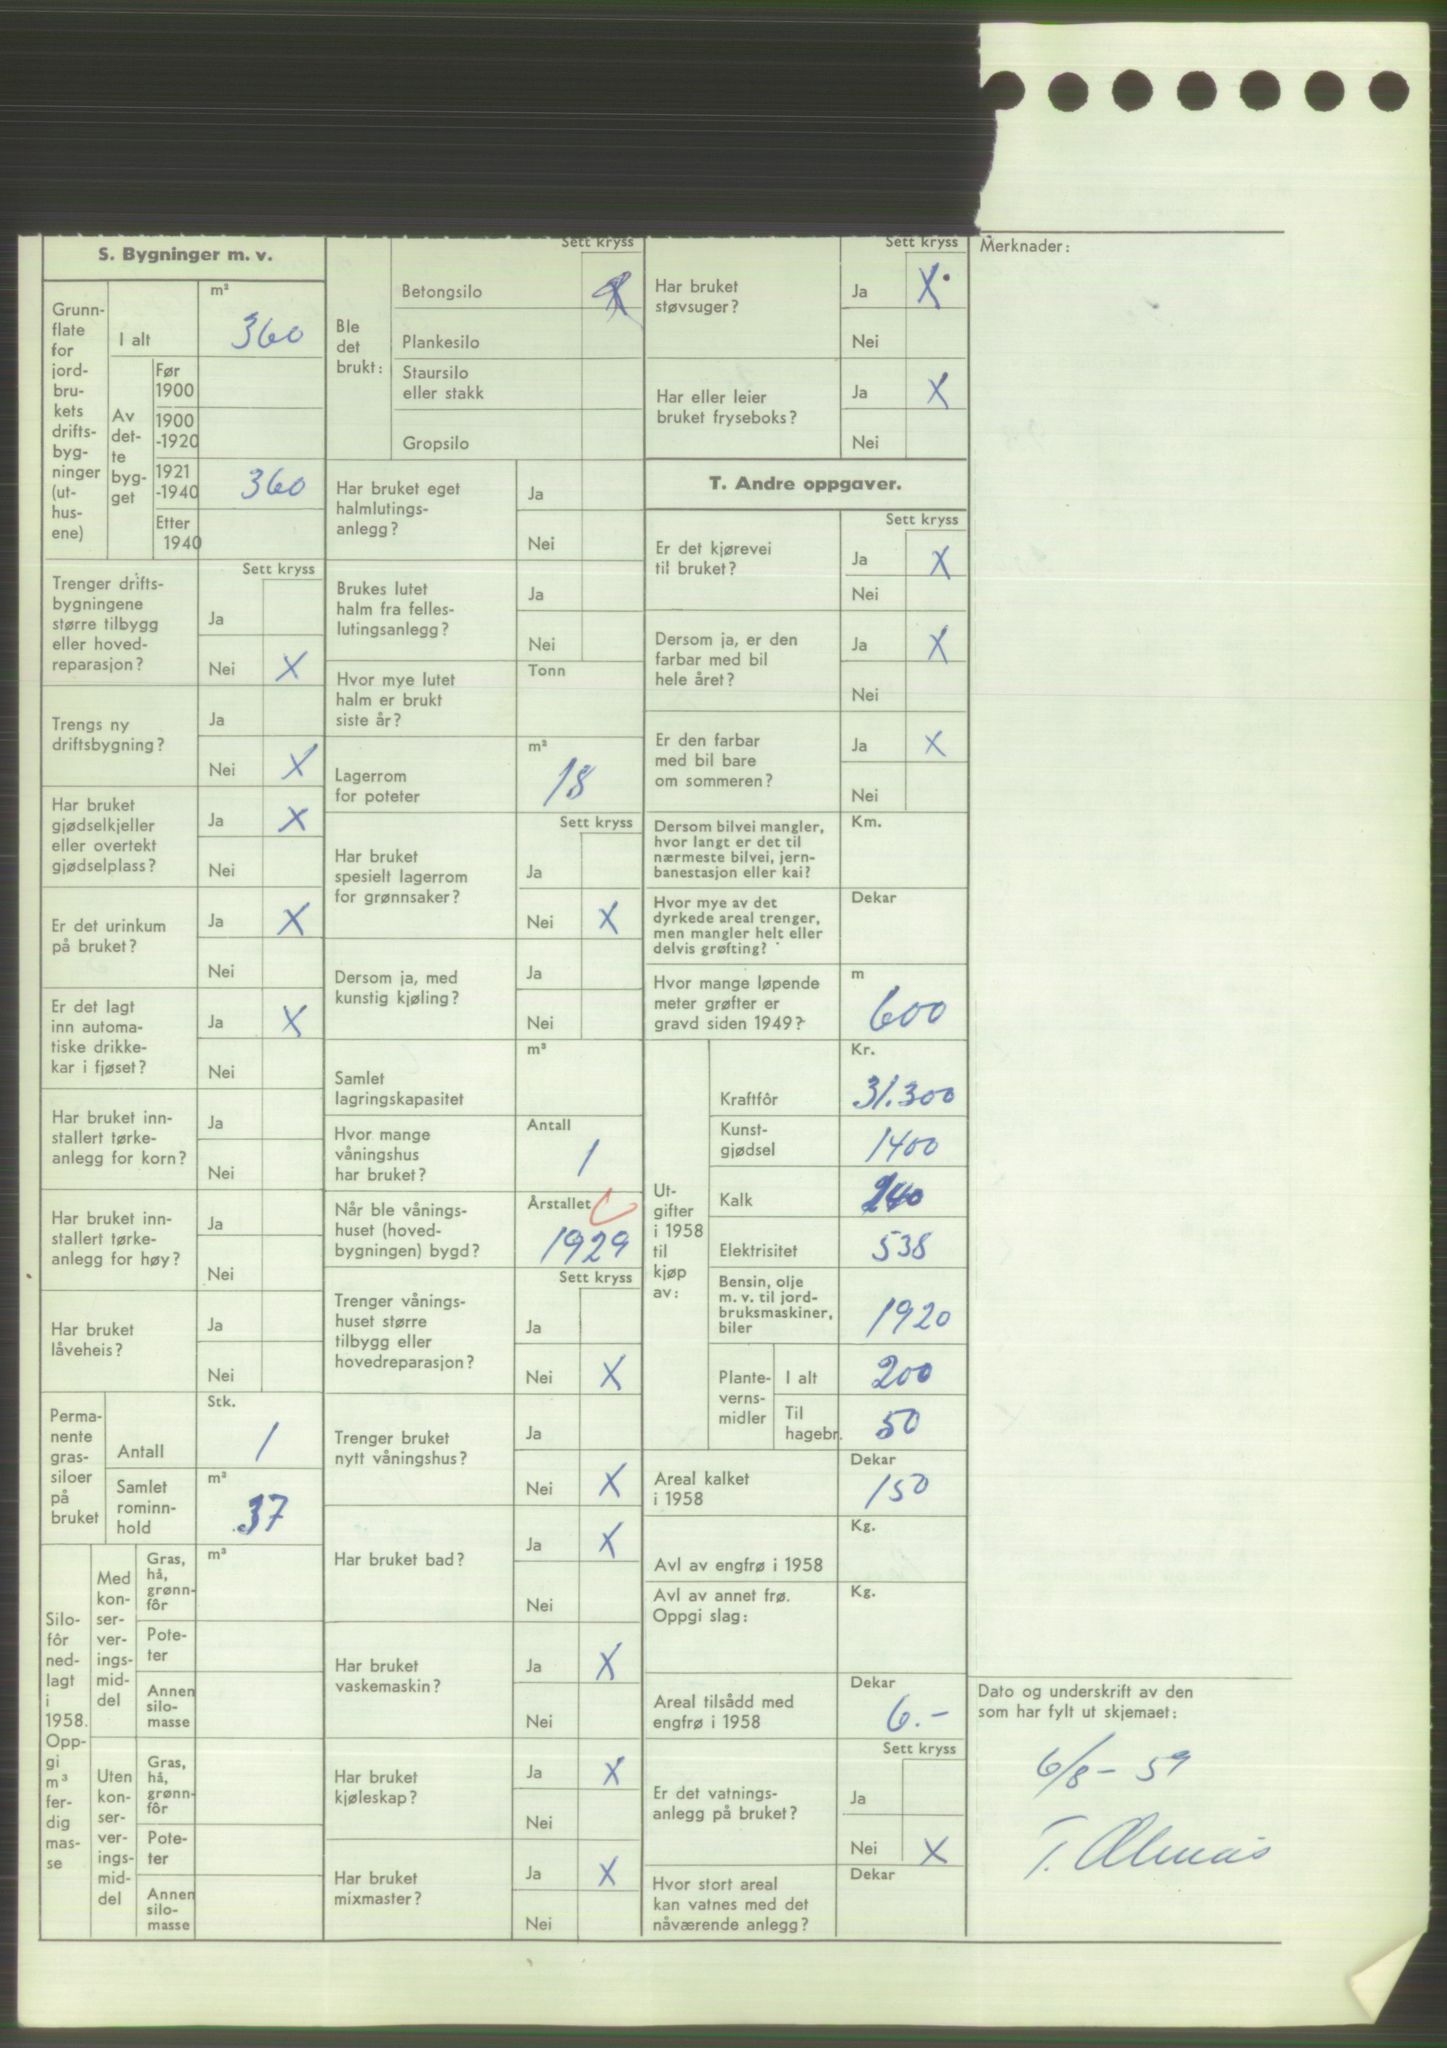 S. Bygninger m. v.
Grunn-
flate
for
jord-
bru-
kets
drifts-
byg-
ninger
(ut-
hus-
ene)
I alt
m²
360
Av
det-
te
byg-
get
Før
1900
1900
-1920
1921
-1940
360
Etter
1940
Sett kryss
Trenger drifts-
bygningene
større tilbygg
eller hoved-
reparasjon?
Ja
Nei X
Trengs ny
driftsbygning?
Ja
Nei X
Har bruket
gjødselkjeller
eller overtekt
gjødselplass?
Ja X
Nei
Er det urinkum
på bruket?
Ja X
Nei
Er det lagt
inn automa-
tiske drikke-
kar i fjøset?
Ja X
Nei
Har bruket inn-
stallert tørke-
anlegg for korn?
Ja
Nei
Har bruket inn-
stallert tørke-
anlegg for høy?
Ja
Nei
Har bruket
låveheis?
Ja
Nei
Perma-
nente
gras-
siloer
på
bruket
Antall
Stk.
1
Samlet
rominn-
hold
m³
37
Silo-
fôr
ned-
lagt
i
1958.
Opp-
gi
m³
fer-
dig
mas-
se
Med
kon-
ser-
ver-
ings-
mid-
del
Gras,
hå,
grønn-
fôr
m³
Pote-
ter
Annen
silo-
masse
Uten
kon-
ser-
ver-
ings-
mid-
del
Gras,
hå,
grønn-
fôr
Pote-
ter
Annen
silo-
masse
Sett kryss
Ble
det
brukt:
Betongsilo X
Plankesilo
Staursilo
eller stakk
Gropsilo
Har bruket eget
halmlutings-
anlegg?
Ja
Nei
Brukes lutet
halm fra felles-
lutingsanlegg?
Ja
Nei
Hvor mye lutet
halm er brukt
siste år?
Tonn
Lagerrom
for poteter
m³
18
Sett kryss
Har bruket
spesielt lagerrom
for grønnsaker?
Ja
Nei X
Dersom ja, med
kunstig kjøling?
Ja
Nei
Samlet
lagringskapasitet
m³
Hvor mange
våningshus
har bruket?
Antall
1
Når ble vånings-
huset (hoved-
bygningen) bygd?
Årstallet
1929
Sett kryss
Trenger vånings-
huset større
tilbygg eller
hovedreparasjon?
Ja
Nei X
Trenger bruket
nytt våningshus?
Ja
Nei X
Har bruket bad?
Ja X
Nei
Har bruket
vaskemaskin?
Ja X
Nei
Har bruket
kjøleskap?
Ja X
Nei
Har bruket
mixmaster?
Ja X
Nei
Sett kryss
Har bruket
støvsuger?
Ja X
Nei
Har eller leier
bruket fryseboks?
Ja X
Nei
T. Andre oppgaver.
Sett kryss
Er det kjørevei
til bruket?
Ja X
Nei
Dersom ja, er den
farbar med bil
hele året?
Ja X
Nei
Er den farbar
med bil bare
om sommeren?
Ja X
Nei
Dersom bilvei mangler,
hvor langt er det til
nærmeste bilvei, jern-
banestasjon eller kai?
Km.
Hvor mye av det
dyrkede areal trenger,
men mangler helt eller
delvis grøfting?
Dekar
Hvor mange løpende
meter grøfter er
gravd siden 1949?
m
600
Ut-
gifter
i 1958
til
kjøp
av:
Kr.
Kraftfôr 31.300
Kunst-
gjødsel 1400
Kalk 240
Elektrisitet 538
Bensin, olje
m. v. til jord-
bruksmaskiner,
biler 1920
Plante-
verns-
midler
I alt 200
Til
hagebr. 50
Areal kalket
i 1958
Dekar
150
Avl av engfrø i 1958
Kg.
Avl av annet frø.
Oppgi slag:
Kg.
Areal tilsådd med
engfrø i 1958
Dekar
6.-
Sett kryss
Er det vatnings-
anlegg på bruket?
Ja
Nei X
Hvor stort areal
kan vatnes med det
nåværende anlegg?
Dekar
Merknader:
Dato og underskrift av den
som har fylt ut skjemaet:
6/8 - 59
T. Ølmås